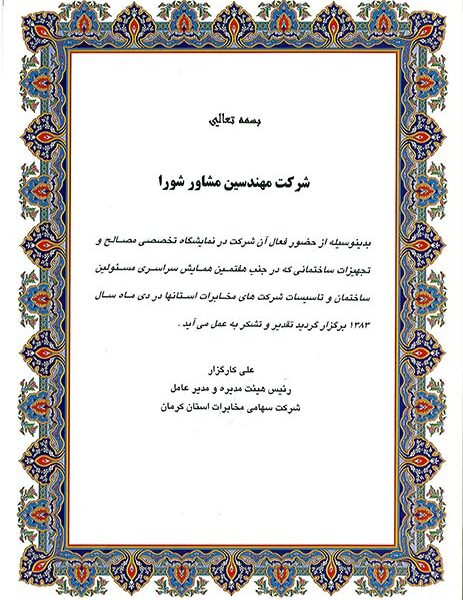 بسمه تعالی
شرکت مهندسین مشاور شورا
بدینوسیله از حضور فعال آن شرکت در نمایشگاه تخصصی مصالح و
تجهیزات ساختمانی که در جنب هفتمین همایش سراسری مسئولین
ساختمان و تاسیسات شرکت های مخابرات استانها در دی ماه سال
۱۳۸۳ برگزار گردید تقدیر و تشکر به عمل می آید .
علی کارگزار
رئیس هیئت مدیره و مدیر عامل
شرکت سهامی مخابرات استان کرمان